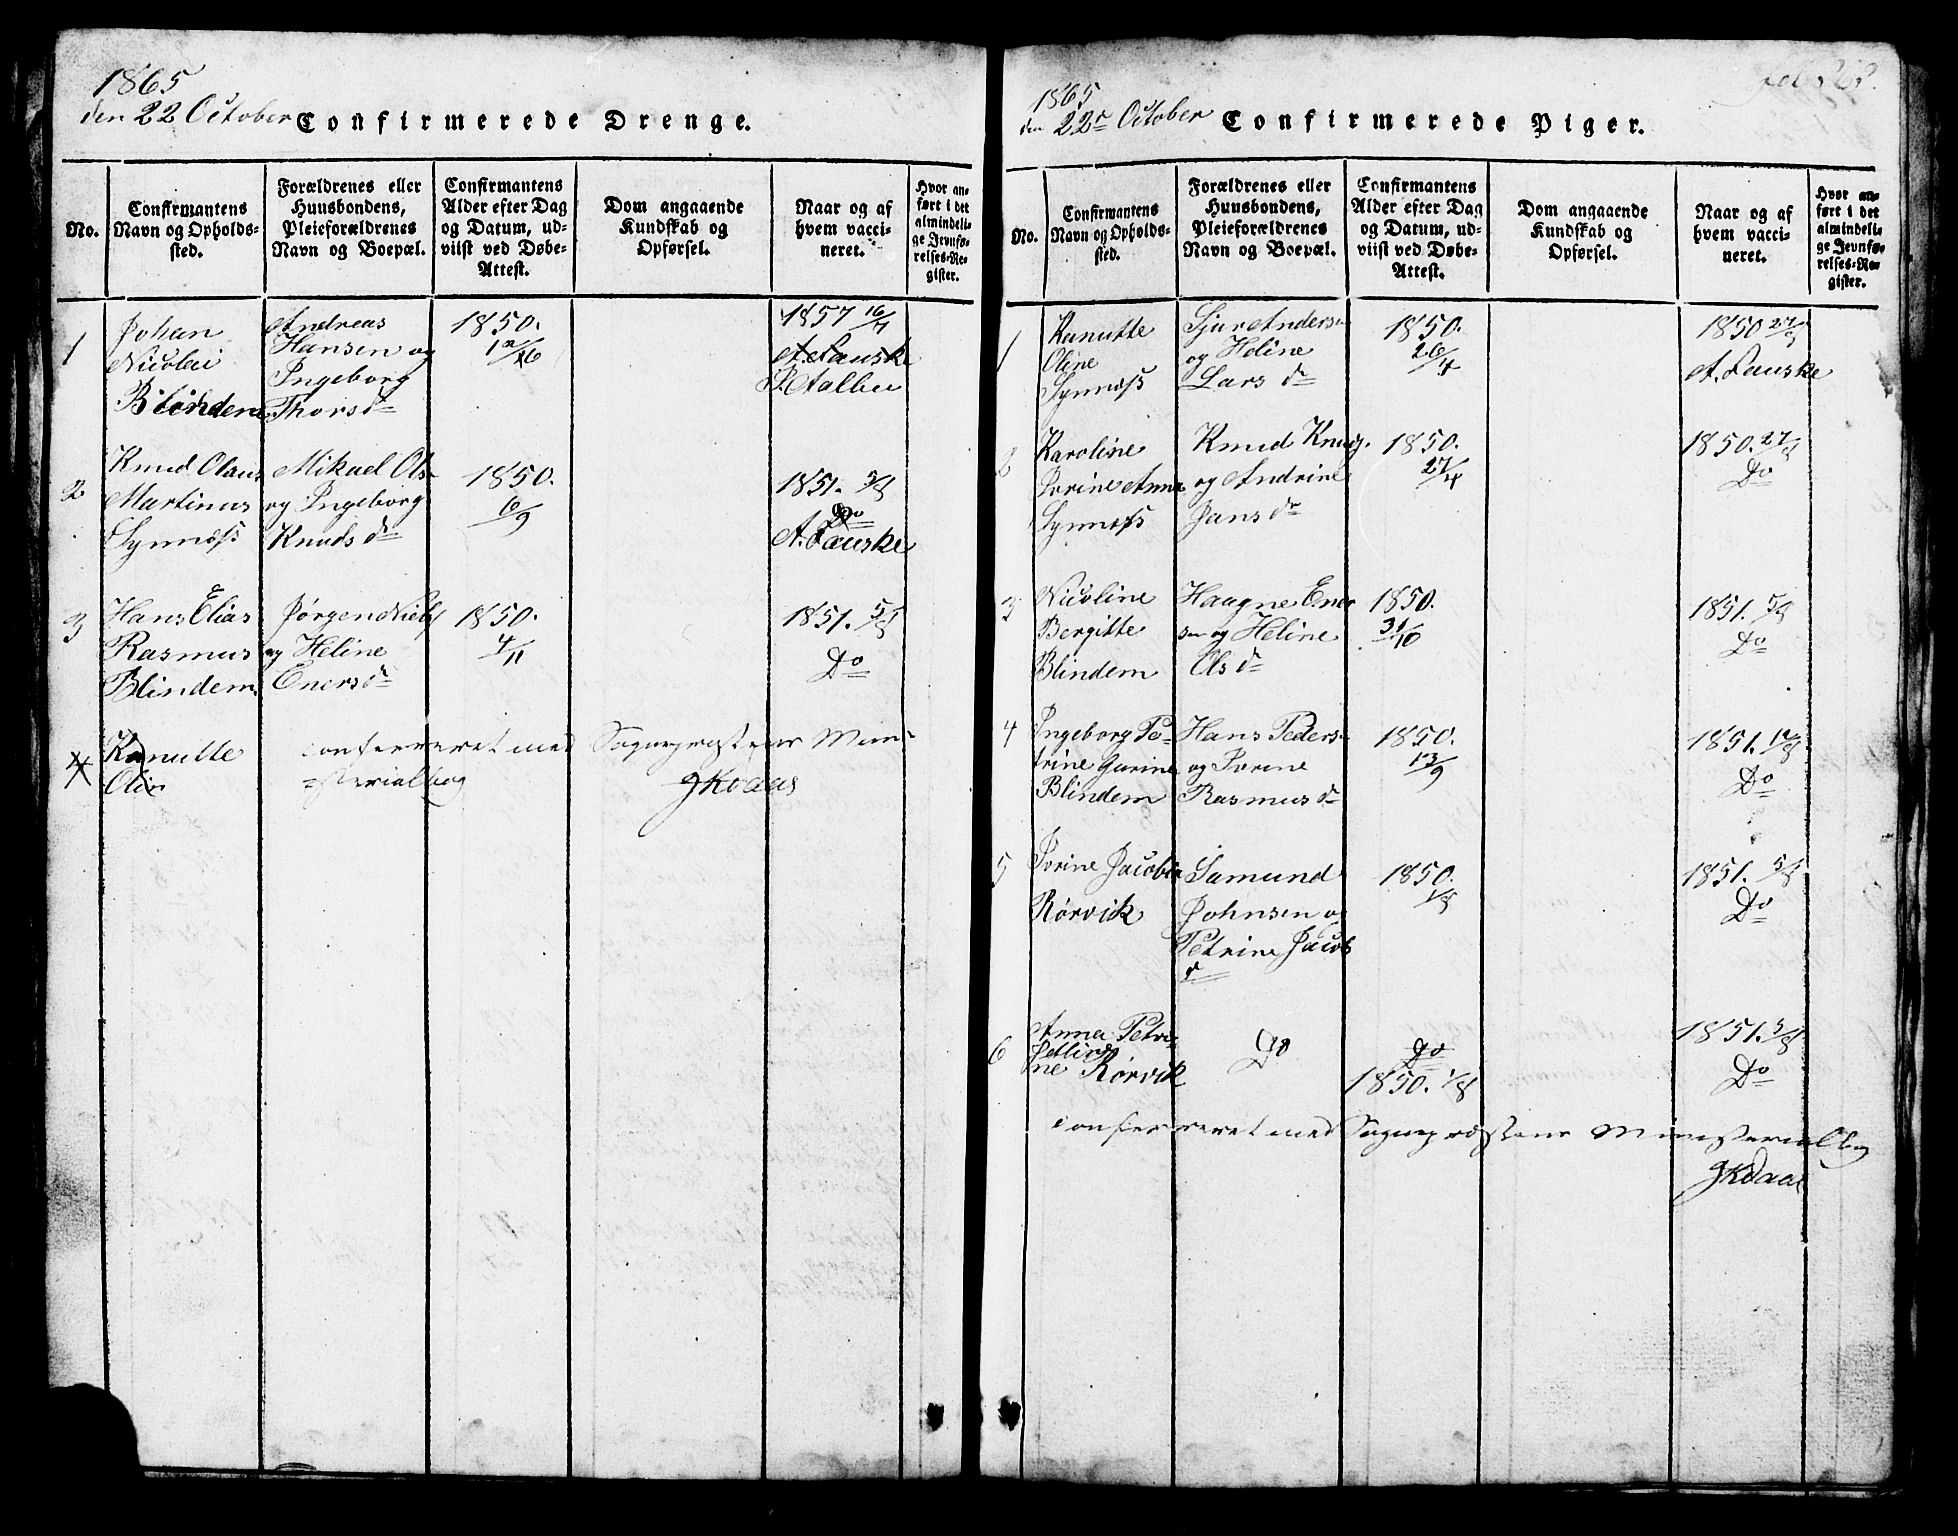 1865
den 22 October Confirmerede Drenge.
No.
Confirmantens
Navn og Opholds-
sted.
Forældrenes eller
Huusbondens,
Pleieforældrenes
Navn og Boepæl.
Confirmantens
Alder efter Dag
og Datum, ud-
viist ved Døbe-
Attest.
Dom angaaende
Kundskab og
Opførsel.
Naar og af
hvem vacci-
neret.
Hvor an-
ført i det
almindeli-
ge Jevnfø-
relses-Re-
gister.
1
Johan
Nicolai
Blindem
Andreas
Hansen og
Ingeborg
Thorsdr
1850.
1857 16/7
A. Lauske
2
Knud Olaus
Martinus
Synnæss
Mikael Ols-
og Ingeborg
Knudsdr
1850.
6/9
1851. 5/8
Do
A. Lauske
3
Hans Elias
Rasmus
Blindem
Jørgen Niels
og Heline
Enersdr
1850.
4/11
1851. 5/8
Do
4
Kanutte
Olin
confereret med Sognepræstens Mini-
sterialbog
JKDaas
1865
den 22r October Confirmerede Piger.
No.
Confirmantens
Navn og Opholds-
sted.
Forældrenes eller
Huusbondens,
Pleieforældrenes
Navn og Boepæl.
Confirmantens
Alder efter Dag
og Datum, ud-
viist ved Døbe-
Attest.
Dom angaaende
Kundskab og
Opførsel.
Naar og af
hvem vacci-
neret.
Hvor an-
ført i det
almindeli-
ge Jevnfø-
relses-Re-
gister.
1
Kanutte
Oline
Synnæss
Sjur Anders-
og Heline
Lars dr
1850.
26/4
1850 27/9
A. Lauske
2
Karoline
Jorine Anna
Synnæss
Knud Knuds.
og Andrine
Jans dr
1850.
27/4
1850. 27/9
Do
3
Nicoline
Bergitte
Blindem
Haagne Ener
sen og Heline
Ols dr
1850.
31/10
1851. 5/8
Do
4
Ingeborg Pe-
trine Gurine
Blindem
Hans Peders-
og Jorine
Rasmus dr
1850.
13/9
1851. 14/8
Do
5
Jorine Jacobin
Rørvik
Samund
Johnsen og
Petrine Jacob
dr
1850.
1/8
1851. 5/8
Do
6
Anna Petri-
ne Rørvik
Do
Do
1850. 1/8
1851. 5/8
Do
confereret med Sognepræstens Ministerialbog
JKDaas